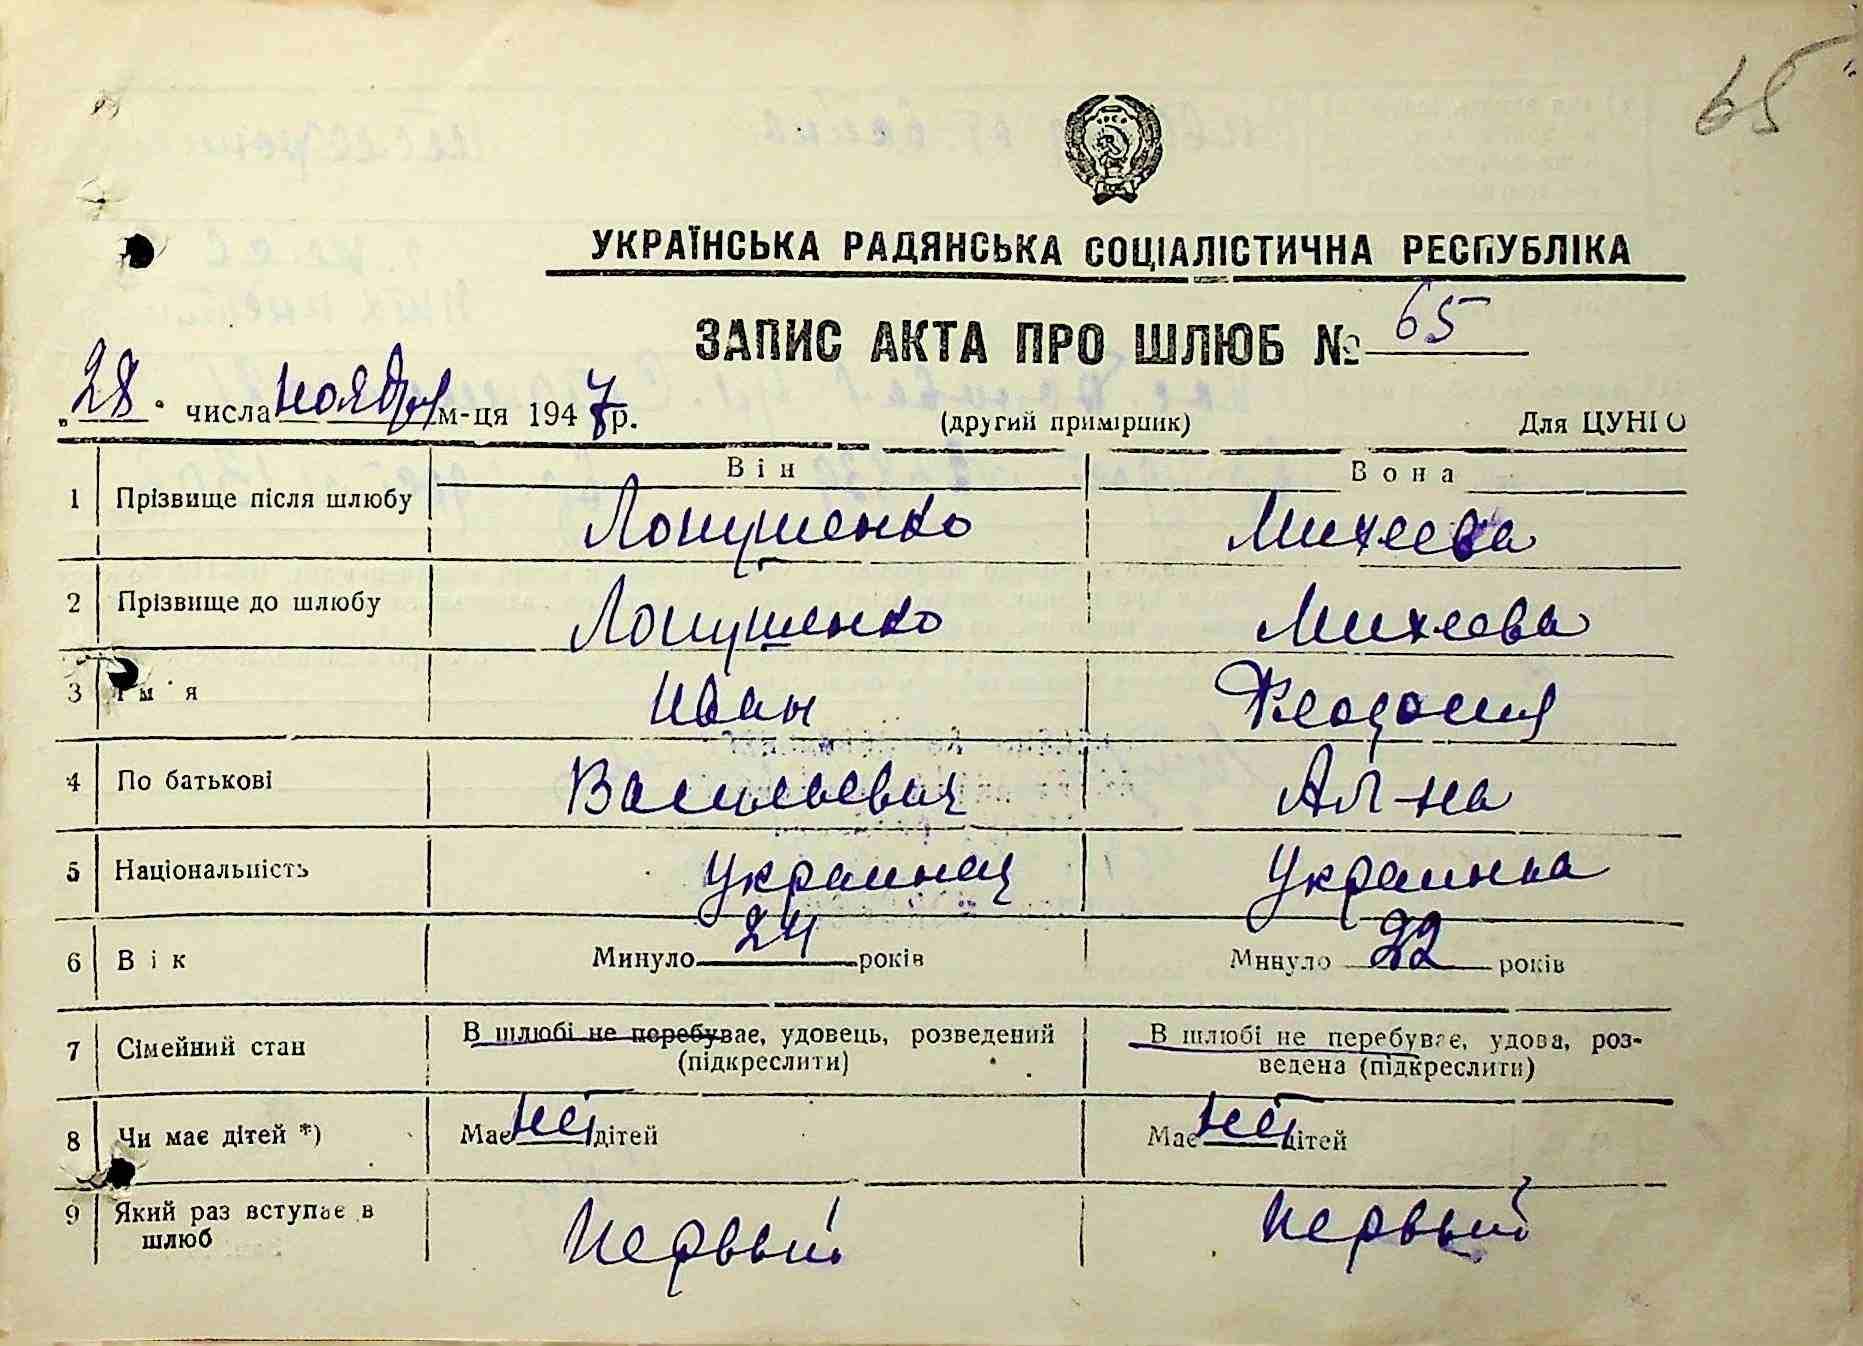 65
УКРАЇНСЬКА РАДЯНСЬКА СОЦІАЛІСТИЧНА РЕСПУБЛІКА
ЗАПИС АКТА ПРО ШЛЮБ № 65
„28" числа ноября м-ця 1947 р. (другий примірник) Для ЦУНГО
Він Вона
1 Прізвище після шлюбу Лопушенко Михеева
2 Прізвище до шлюбу Лопушенко Михеева
3 Ім'я Иван Феодосия
4 По батькові Васильевич Ал-на
5 Національність украинец украинка
6 Вік Минуло 24 років Минуло 22 років
7 Сімейний стан В шлюбі не перебуває, удовець, розведений В шлюбі не перебуває, удова, роз-
(підкреслити) ведена (підкреслити)
8 Чи має дітей *) Має нет дітей Має нет дітей
9 Який раз вступає в Первый Первый
шлюб